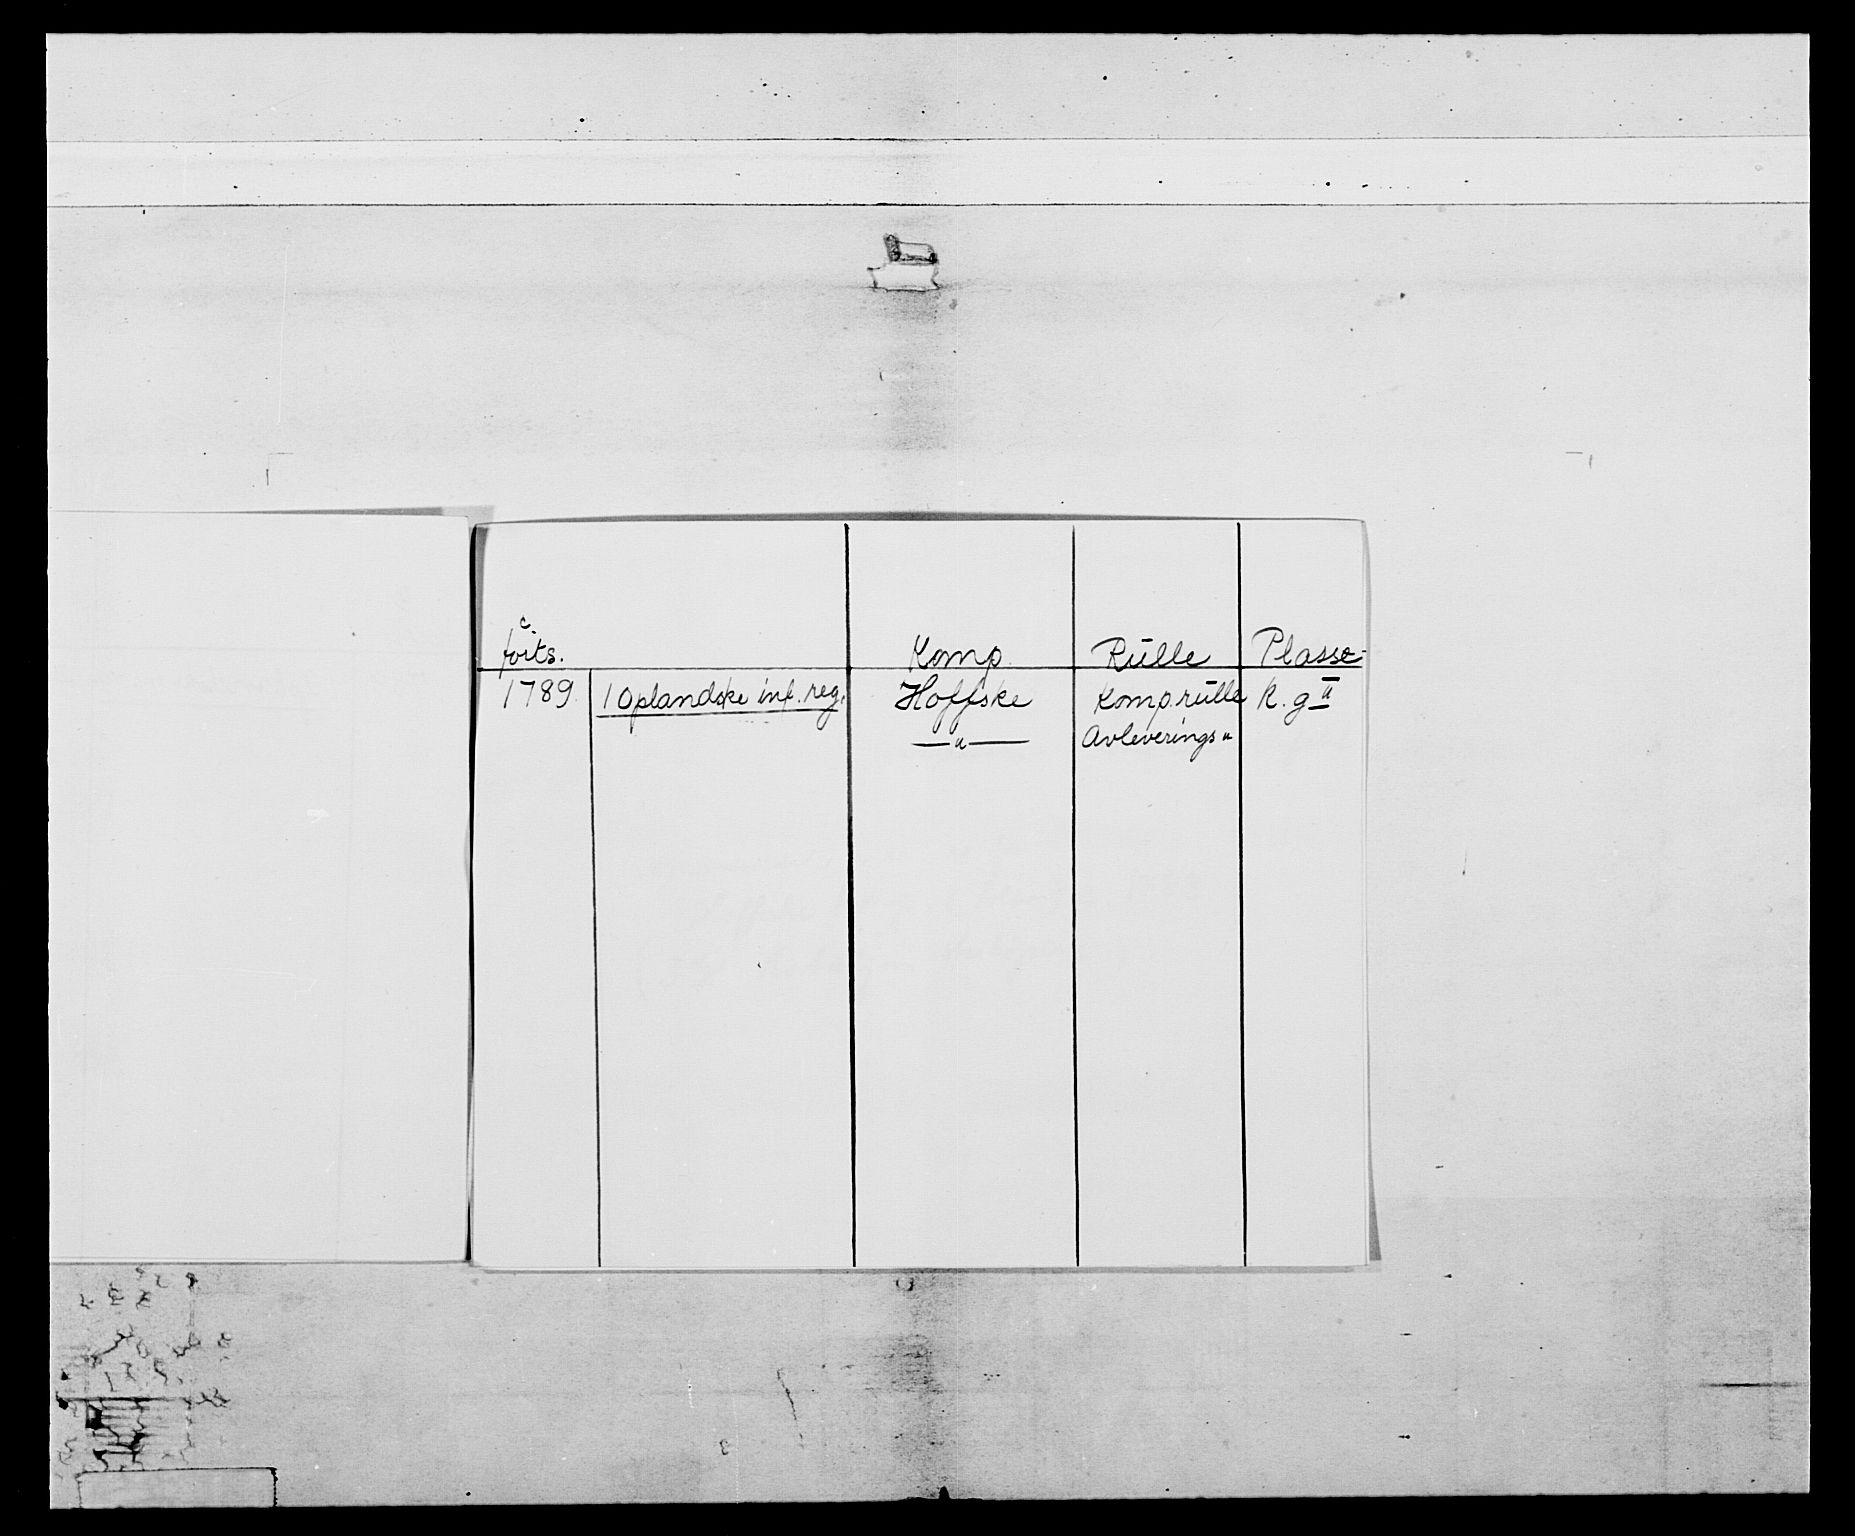 c.
forts. Komp. Rulle Plasse-
1789. 1 Oplandske inf. reg. Hoffske Komp.rulle K. g II
—"— Avleverings "